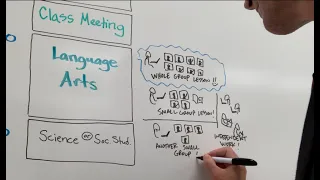 Class Meeting
Language
Arts
Science or Soc. Stud.
WHOLE GROUP LESSON!!
SMALL GROUP LESSON!
ANOTHER SMALL
GROUP!
INDEPENDENT
WORK!